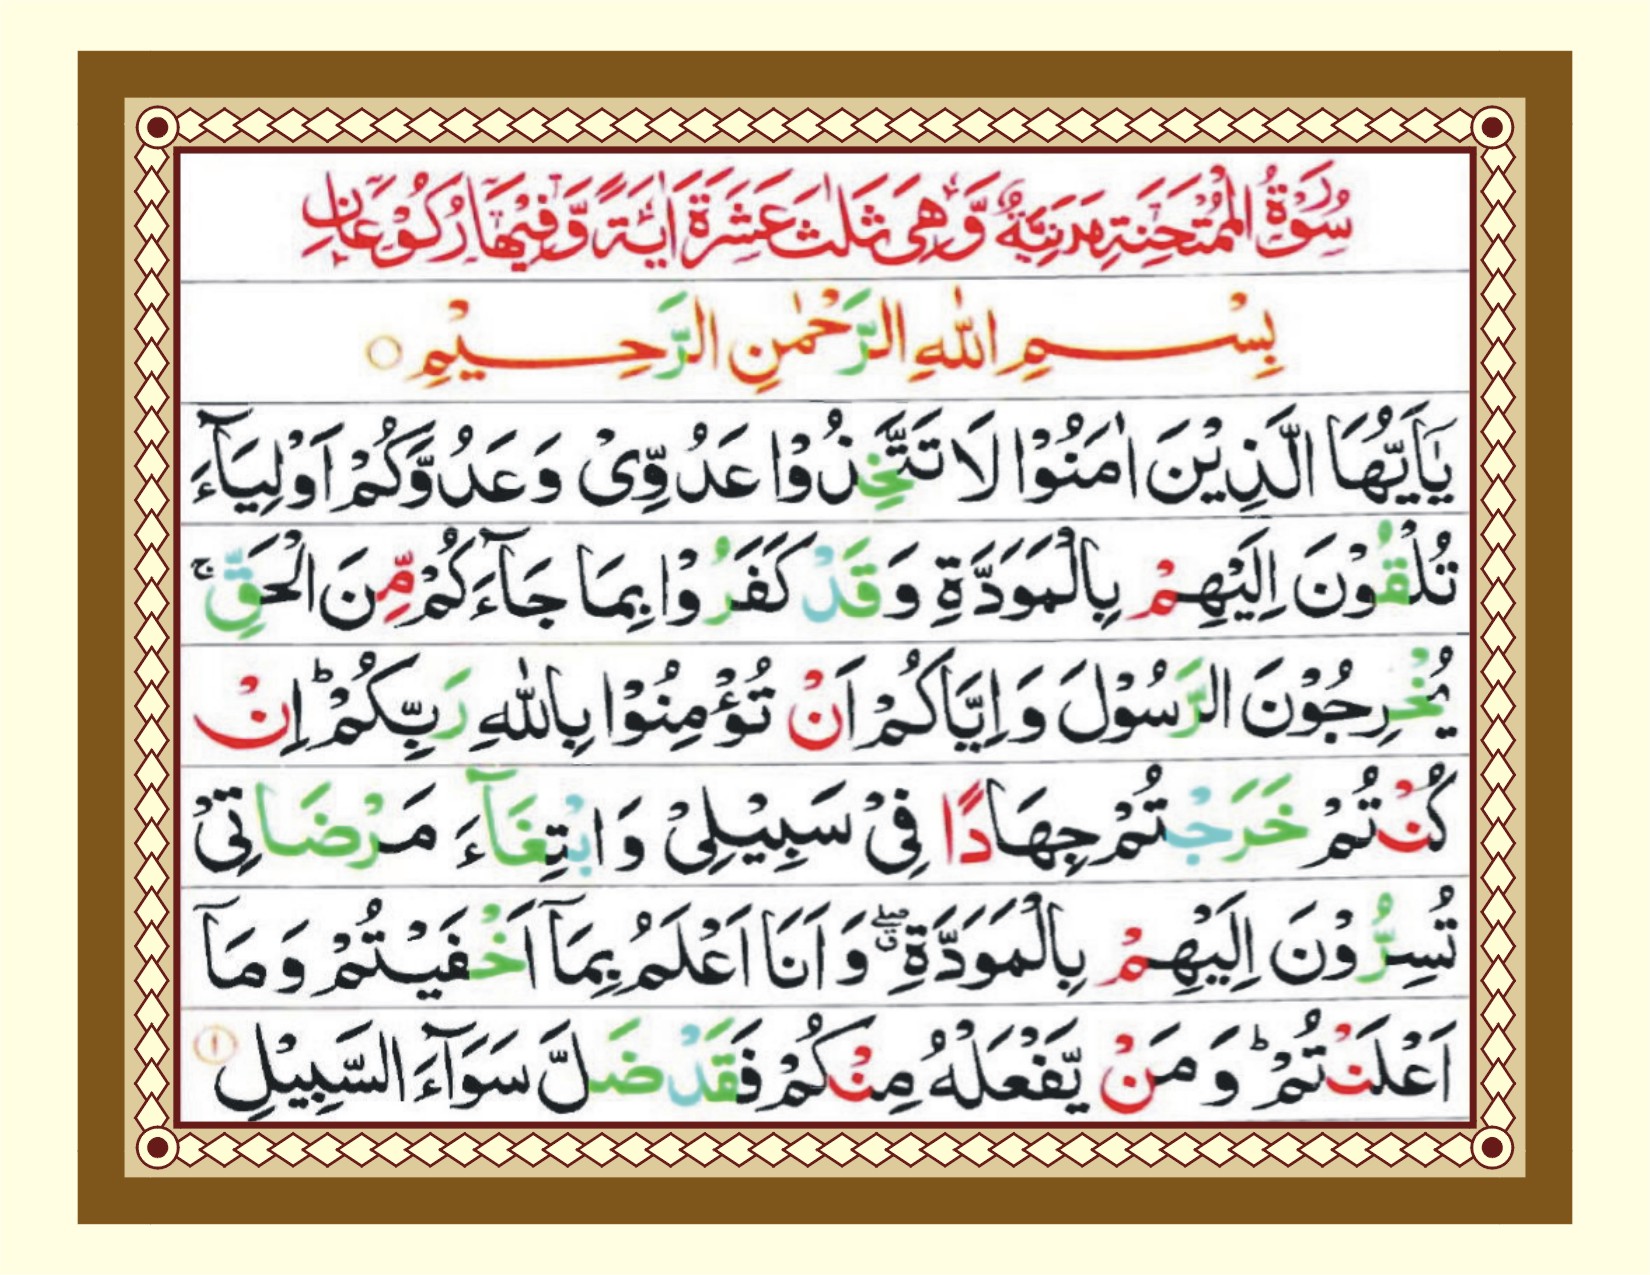 سُوْرَةُ الْمُمْتَحِنَةِ مَدَنِيَّةٌ وَّهِىَ ثَلٰثَ عَشْرَةَ اٰيَةً وَّفِيْهَا رُكُوْعَانِ
بِسْمِ اللّٰهِ الرَّحْمٰنِ الرَّحِيْمِ ○
يٰۤاَيُّهَا الَّذِيْنَ اٰمَنُوْا لَا تَتَّخِذُوْا عَدُوِّىْ وَعَدُوَّكُمْ اَوْلِيَآءَ
تُلْقُوْنَ اِلَيْهِمْ بِالْمَوَدَّةِ وَقَدْ كَفَرُوْا بِمَا جَآءَكُمْ مِّنَ الْحَقِّ ۚ
يُخْرِجُوْنَ الرَّسُوْلَ وَاِيَّاكُمْ اَنْ تُؤْمِنُوْا بِاللّٰهِ رَبِّكُمْ ؕ اِنْ
كُنْتُمْ خَرَجْتُمْ جِهَادًا فِىْ سَبِيْلِىْ وَابْتِغَآءَ مَرْضَاتِىْ
تُسِرُّوْنَ اِلَيْهِمْ بِالْمَوَدَّةِ ۖۗ وَاَنَا اَعْلَمُ بِمَآ اَخْفَيْتُمْ وَمَآ
اَعْلَنْتُمْ ؕ وَمَنْ يَّفْعَلْهُ مِنْكُمْ فَقَدْ ضَلَّ سَوَآءَ السَّبِيْلِ ۝۱